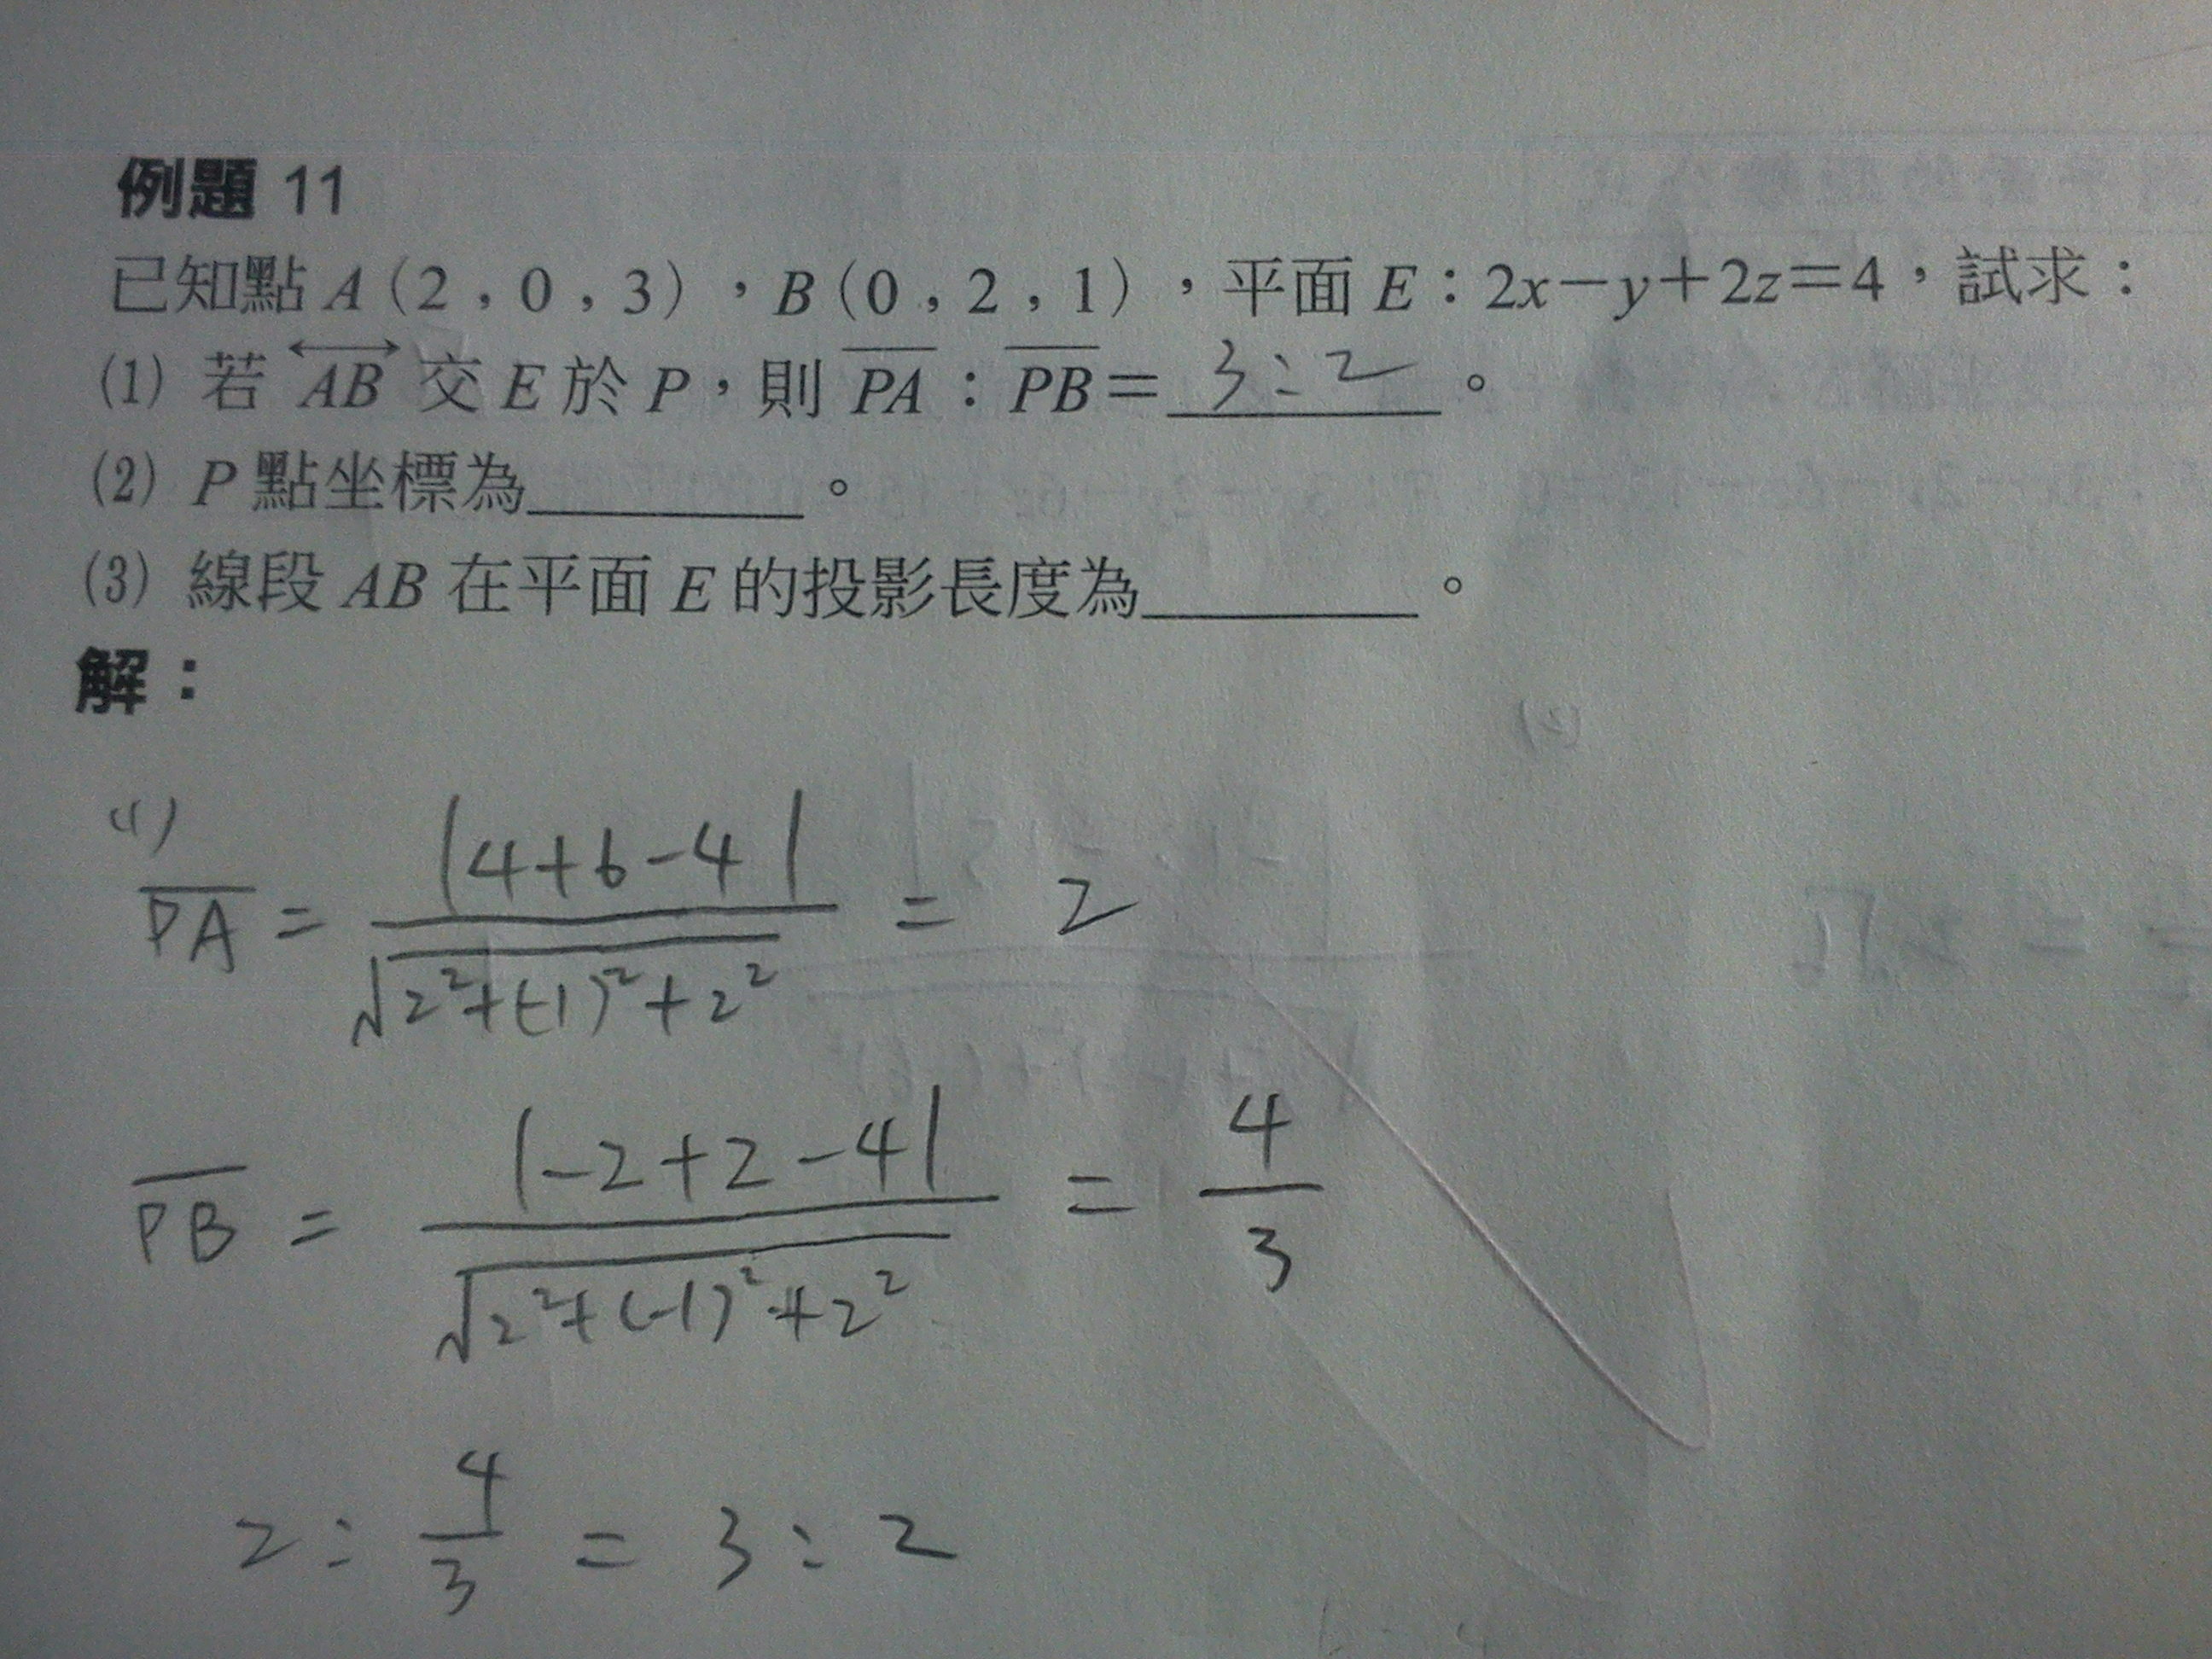 例題 11
已知點 A(2,0,3),B(0,2,1),平面 E:2x-y+2z=4,試求:
(1) 若 AB 交 E 於 P,則 PA:PB= 3:2 。
(2) P 點坐標為________。
(3) 線段 AB 在平面 E 的投影長度為________。
解:
(1)
PA = |4+6-4| / √2²+(-1)²+2² = 2
PB = |-2+2-4| / √2²+(-1)²+2² = 4/3
2 : 4/3 = 3 : 2